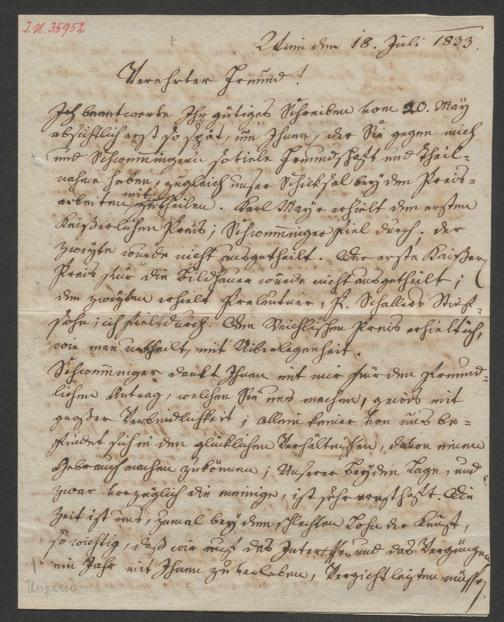 I.N. 35952
Wien den 18. Juli 1833.
Verehrter Freund!
Ich beantworte Ihr gütiges Schreiben vom 20. May
absichtlich erst so spät, um Ihnen, der Sie gegen mich
und Schwemmingern so viele Freundschaft und Theil-
nahme haben, zugleich unser Schicksal bey den Preis-
arbeiten mitzutheilen. Karl Mayr erhielt den ersten
Kaiserlichen Preis; Schwemminger fiel durch. der
zweyte wurde nicht ausgetheilt. Der erste Kaiser
Preis für die Bildhauer wurde nicht ausgetheilt;
den zweyten erhielt Preleutner, H. Schallers Stief-
sohn; ich fiel durch. Den Reichlischen Preis erhielt ich,
wie man urtheilt, mit Überlegenheit.
Schwemminger dankt Ihnen mit mir für den freund-
lichen Antrag, welchen Sie uns machen, gewiß mit
großer Verbindlichkeit; allein keiner von uns be-
findet sich in den glücklichen Verhältnissen, davon einen
Gebrauch machen zu können; Unserer beyden Lage, und
zwar vorzüglich die meinige, ist sehr ernsthaft. Die
Zeit ist uns, zumal bey dem schlechten Lohn der Kunst,
so wichtig, daß wir auf das Interesse und das Vergnügen
ein Jahr mit Ihnen zu verleben, Verzicht leisten müssen,
Ungarn